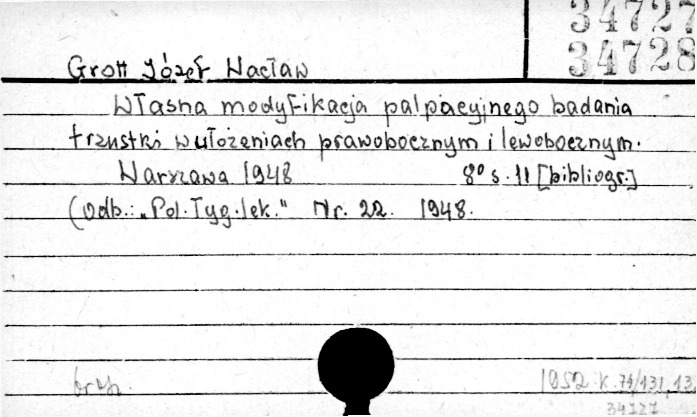 34727
34728
Grott Józef Wacław
Własna modyfikacja palpacyjnego badania
trzustki w ułożeniach prawobocznym i lewobocznym.
Warszawa 1948 8° s. 11 [bibliogr.]
(Odb.: „Pol. Tyg. lek." Nr. 22. 1948.
1952 K. 74/131, 13,
34727